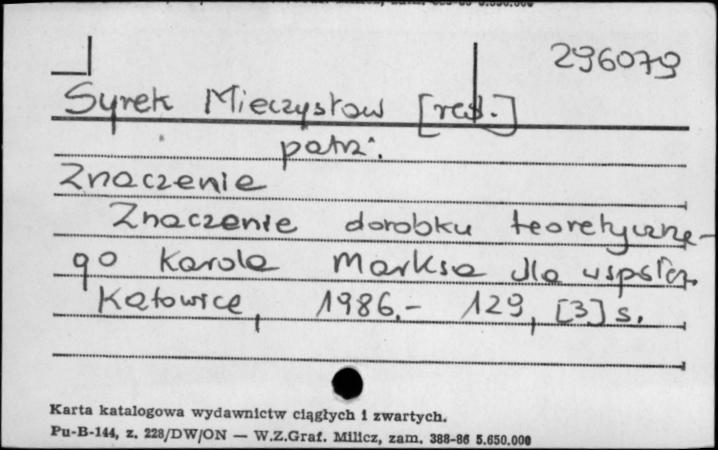 296079
Syrek Mieczysław [red.]
patrz:
Znaczenie
Znaczenie dorobku teoretyczne-
go Karola Marksa dla wspłcz.
Katowice, 1986.- 129, [3] s.
Karta katalogowa wydawnictw ciągłych i zwartych.
Pu-B-144, z. 228/DW/ON — W.Z.Graf. Milicz, zam. 388-86 5.650.000